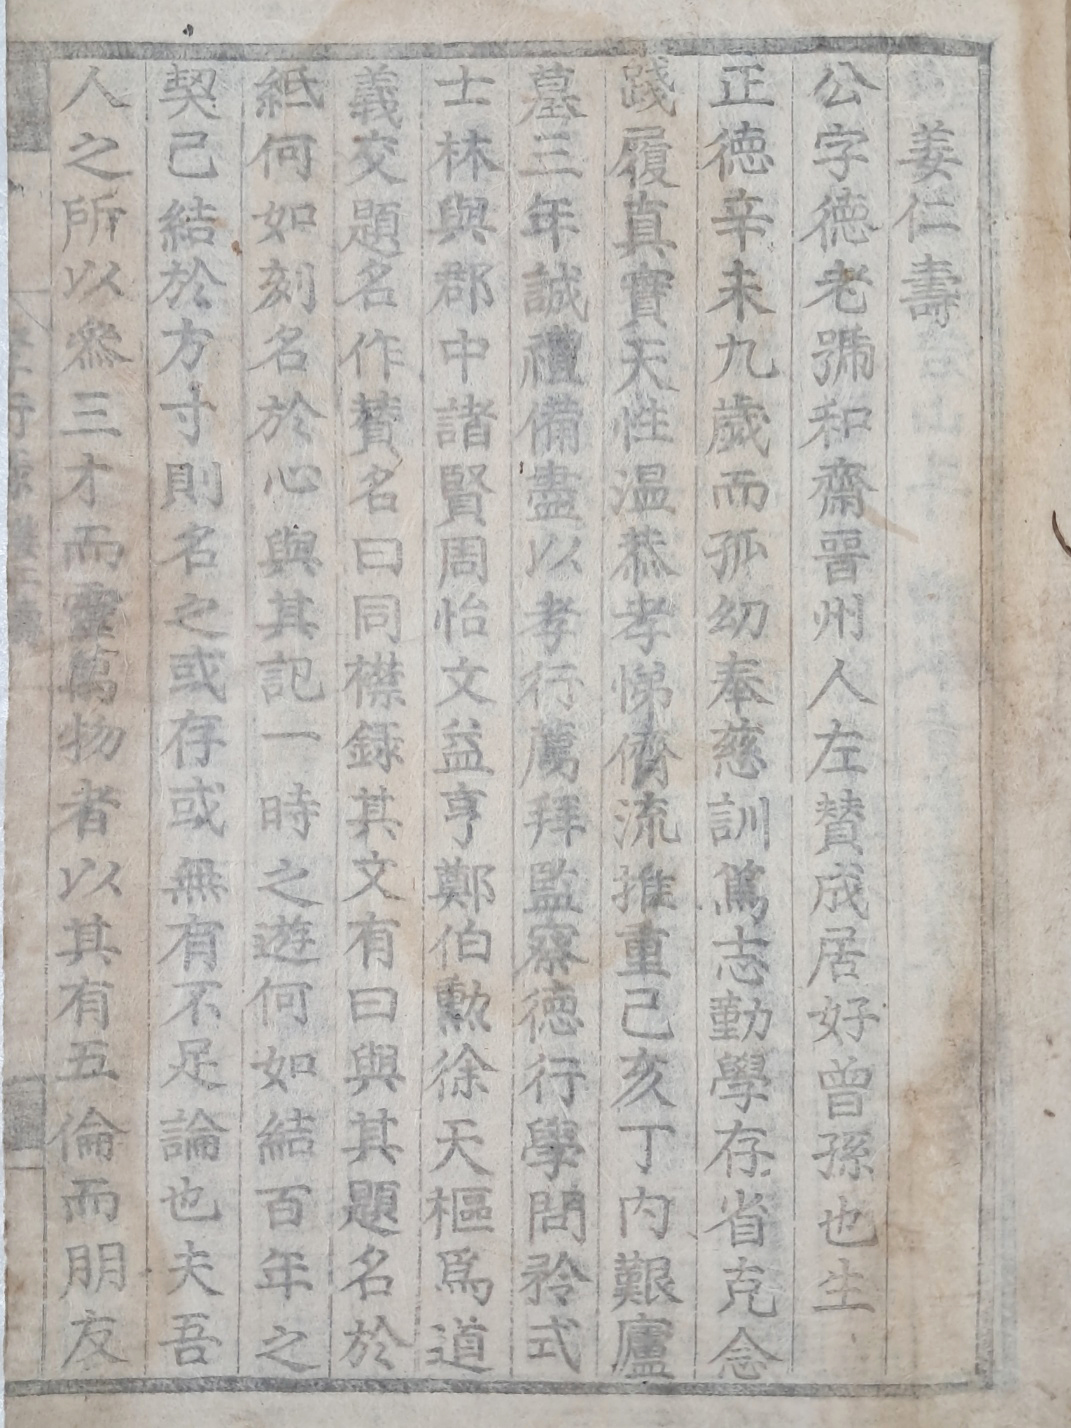 姜仁壽
公字德老號和齋晉州人左賛成居好曾孫也生
正德辛未九歲而孤幼奉慈訓篤志勤學存省克念
踐履真實天性温恭孝悌儕流推重己亥丁內艱廬
墓三年誠禮備盡以孝行薦拜監察德行學問矜式
士林與郡中諸賢周怡文益亨鄭伯勲徐天樞爲道
義交題名作賛名曰同襟録其文有曰與其題名於
紙何如刻名於心與其記一時之遊何如結百年之
契己結於方寸則名之或存或無有不足論也夫吾
人之所以叅三才而靈萬物者以其有五倫而朋友